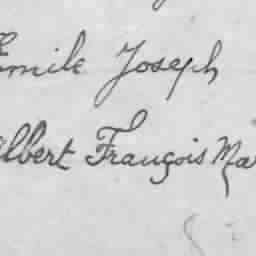 Emile Joseph
Albert François Ma